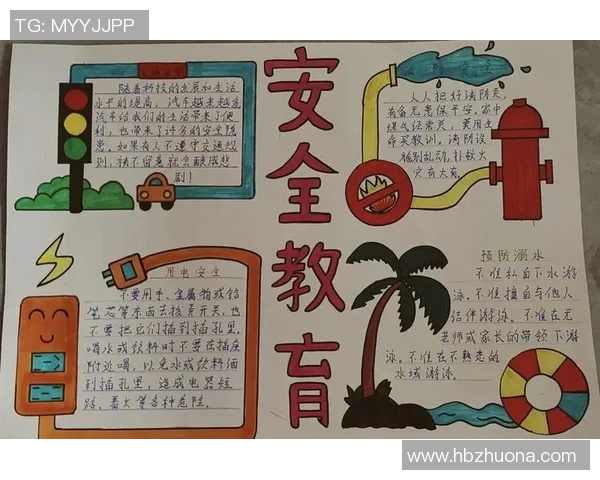 TG: MYYJJPP
安全教育
交通安全
随着科技的发展和生活
水平的提高,汽车越来越多
汽车给我们的生活带来了便
利,也带来了许多的安全隐
患,如果有人不遵守交通规
则,稍不留意就会酿成悲
剧!
消防安全
人人把好消防关,
有备无患保平安,家中
煤气经常关,莫用生
命买教训,消防设
施别乱动,扑救火
灾有大有
用电安全
不要用手、金属物或铅
笔芯等东西去拨弄开关,也
不要把它们插到插孔里,
喝水或饮料时不要去插座
附近喝,以免水或饮料洒
到插孔里,造成电器短
路、着火等各种危险。
预防溺水
不准私自下水游
泳。不准擅自与他人
结伴游泳。不准在无
老师或家长的带领下游
泳。不准在不熟悉的
水域游泳。
www.hbzhuona.com